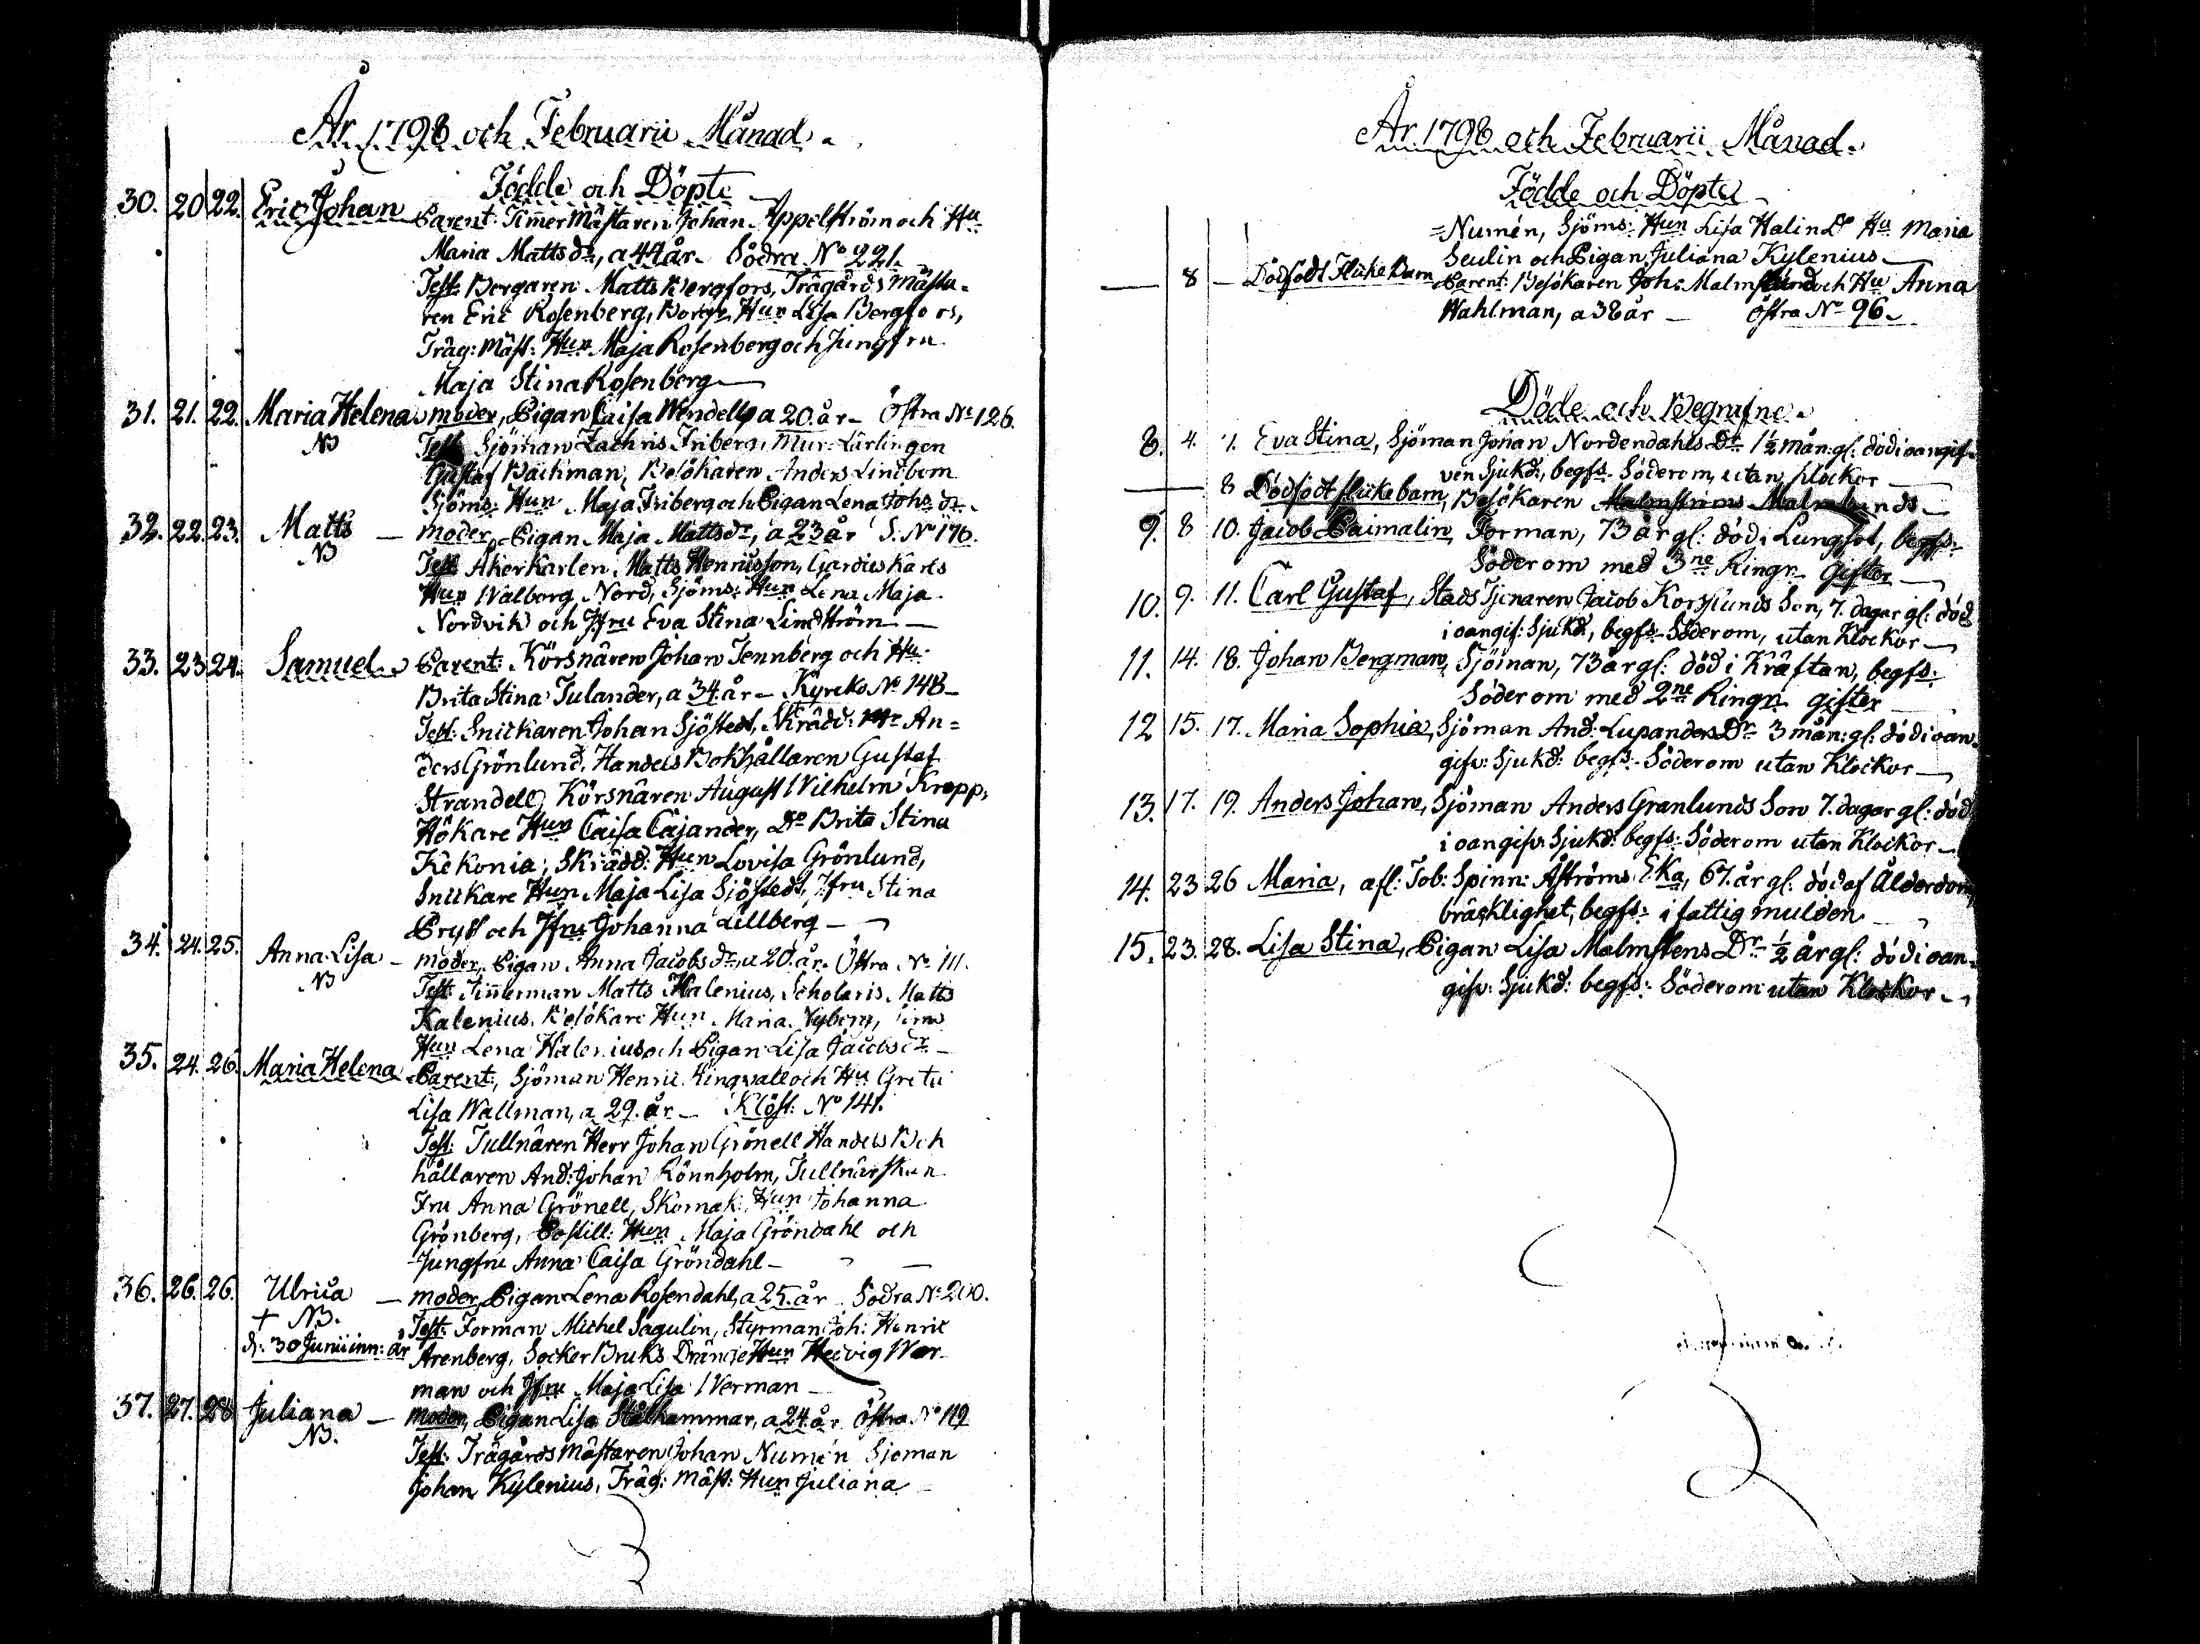 År 1798 och Februarii Månad.
Födde och Döpte
30. 20 22. Eric Johan Parent: Timmer Mästaren Johan Appelström och Hu
Maria Mattsdr, a 44 år. Södra No 221.
Test: Borgaren Matts Bergfors, Trägårds Mästa-
ren Eric Rosenberg, Borgr Hun Lisa Bergfors,
Träg: Mäst: Hun Maja Rosenberg och Jungfru
Maja Stina Rosenberg
31. 21. 22. Maria Helena moder, Pigan Caisa Wendell, a 20 år - Östra No 126.
NB Test: Sjöman Zachris Friberg, Mur-Lärlingen
Gustaf Backman, Besökaren Anders Lindbom
Sjöms: Hun Maja Friberg och Pigan Lena Johs dr.
32. 22. 23. Matts - moder, Pigan Maja Mattsdr, a 23 år S. No 176.
NB Test: Åkerkarlen Matts Henricsson, Gardieskarls
Hun Walborg Nord, Sjöms: Hun Lena Maja
Nordvik och Jfru Eva Stina Lindström -
33. 23 24. Samuel Parent: Körsnären Johan Tennberg och Hu.
Brita Stina Julander, a 34 år - Kyrcko No 148 -
Test: Snickaren Johan Sjöstedt, Skrädd: Mr An=
ders Grönlund, Handels Bokhållaren Gustaf
Strandell, Körsnären August Wilhelm Kropp,
Hökare Hun Caisa Cajander, Do Brita Stina
Kekonia, Skrädd: Hun Lovisa Grönlund,
Snickare Hun Maja Lisa Sjöstedt, Jfru Stina
Pryss och Jfru Johanna Lillberg -
34. 24. 25. Anna Lisa - moder, Pigan Anna Jacobs dr, a 20 år. Östra No 111.
NB Test: Timmerman Matts Kalenius, Scholaris Matts
Kalenius, Besökare Hun Maria Nyberg,
Hun Lena Kalenius och Pigan Lisa Jacobsdr -
35. 24. 26. Maria Helena Parent, Sjöman Henric Ringvall och Hu Greta
Lisa Wallman, a 29 år - Klöst: No 141.
Test: Tullnären Herr Johan Grönell Handels Bok
hållaren And: Johan Rönnholm, Tullnärskan
Fru Anna Grönell, Skomak: Hun Johanna
Grönberg, Postill: Hun Maja Gröndahl och
Jungfru Anna Caisa Gröndahl -
36. 26. 26. Ulrica - moder, Pigan Lena Rosendahl, a 25 år Södra No 200.
† NB. Test: Forman Michel Sagulin, Styrman Joh: Henric
d: 30 Junii inn: år Arenberg, Socker Bruks Dränge Hun Hedvig Wer-
man och Jfru Maja Lisa Werman -
37. 27. 28 Juliana - moder, Pigan Lisa Stålhammar, a 24 år Östra No 119
NB. Test: Trägårds Mästaren Johan Numén Sjöman
Johan Kylenius, Träg: Mäst: Hun Juliana
År 1798 och Februarii Månad.
Födde och Döpte
=Numén, Sjöms: Hun Lisa Halin Do Hu Maria
Seulin och Pigan Juliana Kylenius
— 8 - Dödfödt Flicke Barn Parent: Besökaren Joh: Malmlund och Hu Anna
Wahlman, a 38 år - Östra No 96.
Döde och Begrafne.
8. 4. 7. Eva Stina, Sjöman Johan Nordendahls Dr 1½ mån: gl: död i oangif-
ven Sjukd:, begfs. Söderom, utan klockor
— 8 Dödfödt flicke barn, Besökaren Malmströms Malmlunds -
9. 8 10. Jacob Paimalin, Forman, 73 år gl: död i Lungsot, begfs:
Söderom med 3ne Ringr. Gifter
10. 9. 11. Carl Gustaf, Stads Tjenaren Jacob Korslunds Son, 7. dagar gl: död
i oangif: Sjukd, begfs. Söderom, utan Klockor
11. 14. 18. Johan Bergman, Sjöman, 73 år gl: död i Kräftan, begfs:
Söderom med 2ne Ringr. gifter
12 15. 17. Maria Sophia, Sjöman And: Lupanders Dr 3 mån: gl: död i oan-
gifv: Sjukd: begfs. Söderom utan Klockor
13. 17. 19. Anders Johan, Sjöman Anders Granlunds Son 7. dagar gl: död
i oangifv: Sjukd: begfs: Söderom utan Klockor
14. 23 26 Maria, afl: Tob: Spinn: Åströms Eka, 67. år gl: död af Ålderdoms
bräcklighet, begfs: i fattig mulden
15. 23. 28. Lisa Stina, Pigan Lisa Malmstens Dr ½ år gl: död i oan-
gifv: Sjukd: begfs: Söderom utan Klockor